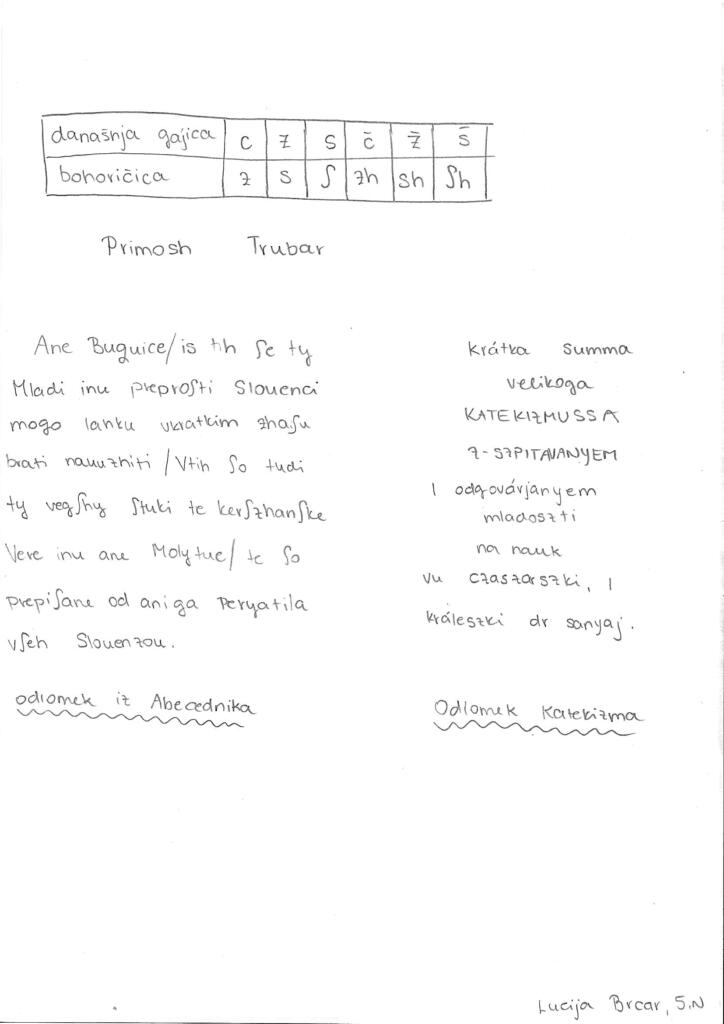 današnja gajica c z s č ž š
bohoričica z s ſ zh sh ſh
Primosh Trubar
Ane Buguice/is tih ſe ty
Mladi inu preproſti Slouenci
mogo lahku vkratkim zhaſu
brati nauuzhiti /Vtih ſo tudi
ty vegſhy ſtuki te kerſzhanſke
Vere inu ane Molytue/ te ſo
prepiſane od aniga Peryatila
vſeh Slouenzou.
odlomek iz Abecednika
Krátka summa
velikoga
KATEKIZMUSSA
Z-SZPITAVANYEM
I odgovárjanyem
mladoszti
na nauk
vu czaszarszki, I
králeszki dr sanyaj.
Odlomek Katekizma
Lucija Brcar, 5.N